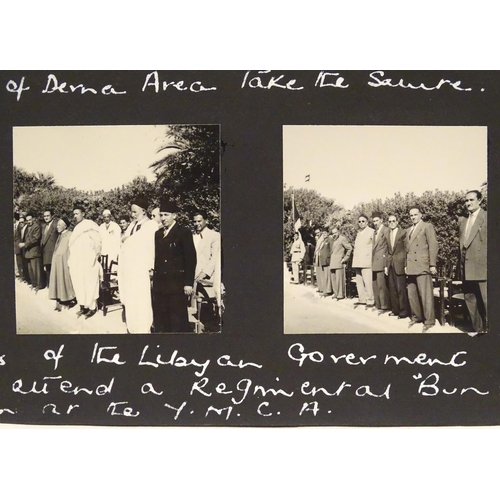 of Derna Area Take the Salute.
s of the Libyan Goverment
attend a Regimental "Bun
n at the Y.M.C.A.